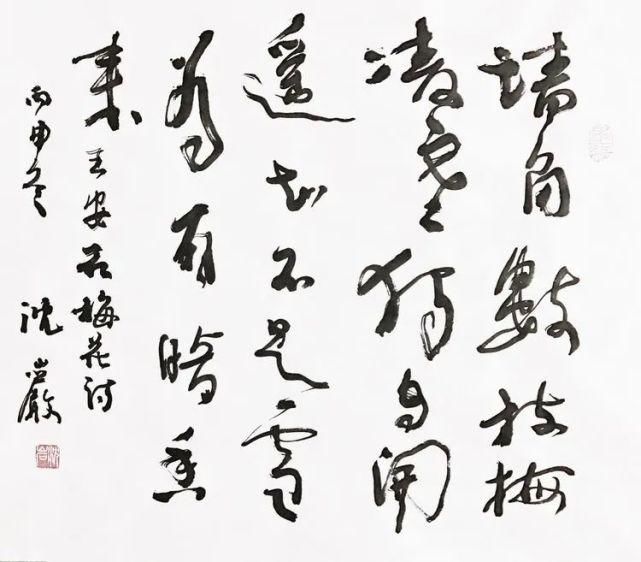 墙角数枝梅
凌寒独自开
遥知不是雪
为有暗香
来 王安石梅花诗
丙申冬 沈岩